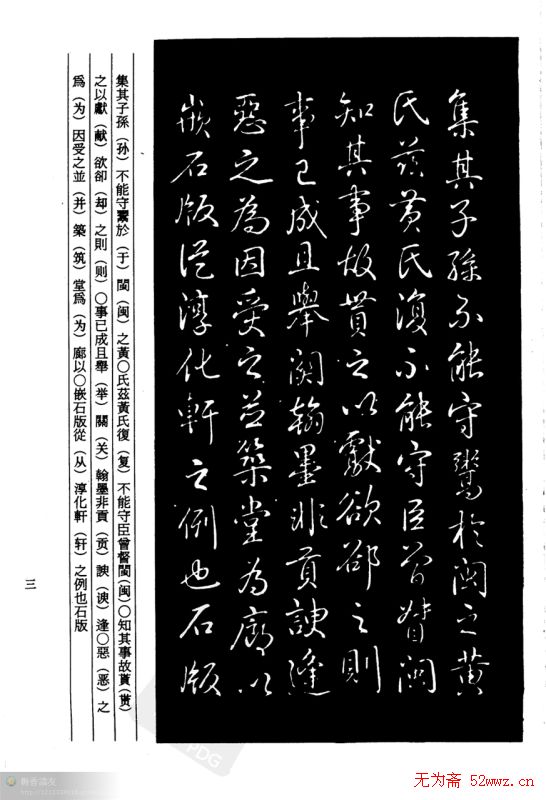 集其子孫不能守鬻於閩之黃
氏茲黃氏復不能守臣曾督閩
知其事故貰之以獻欲卻之則
事已成且舉關翰墨非貢諛逢
惡之為因受之並築堂為廊以
嵌石版從淳化軒之例也石版
集其子孫（孙）不能守鬻於（于）閩（闽）之黃○氏茲黃氏復（复）不能守臣曾督閩（闽）○知其事故貰（贳）
之以獻（献）欲卻（却）之則（则）○事已成且舉（举）關（关）翰墨非貢（贡）諛（谀）逢○惡（恶）之
爲（为）因受之並（并）築（筑）堂爲（为）廊以○嵌石版從（从）淳化軒（轩）之例也石版
三
PDG
无为斋 52wwz.cn